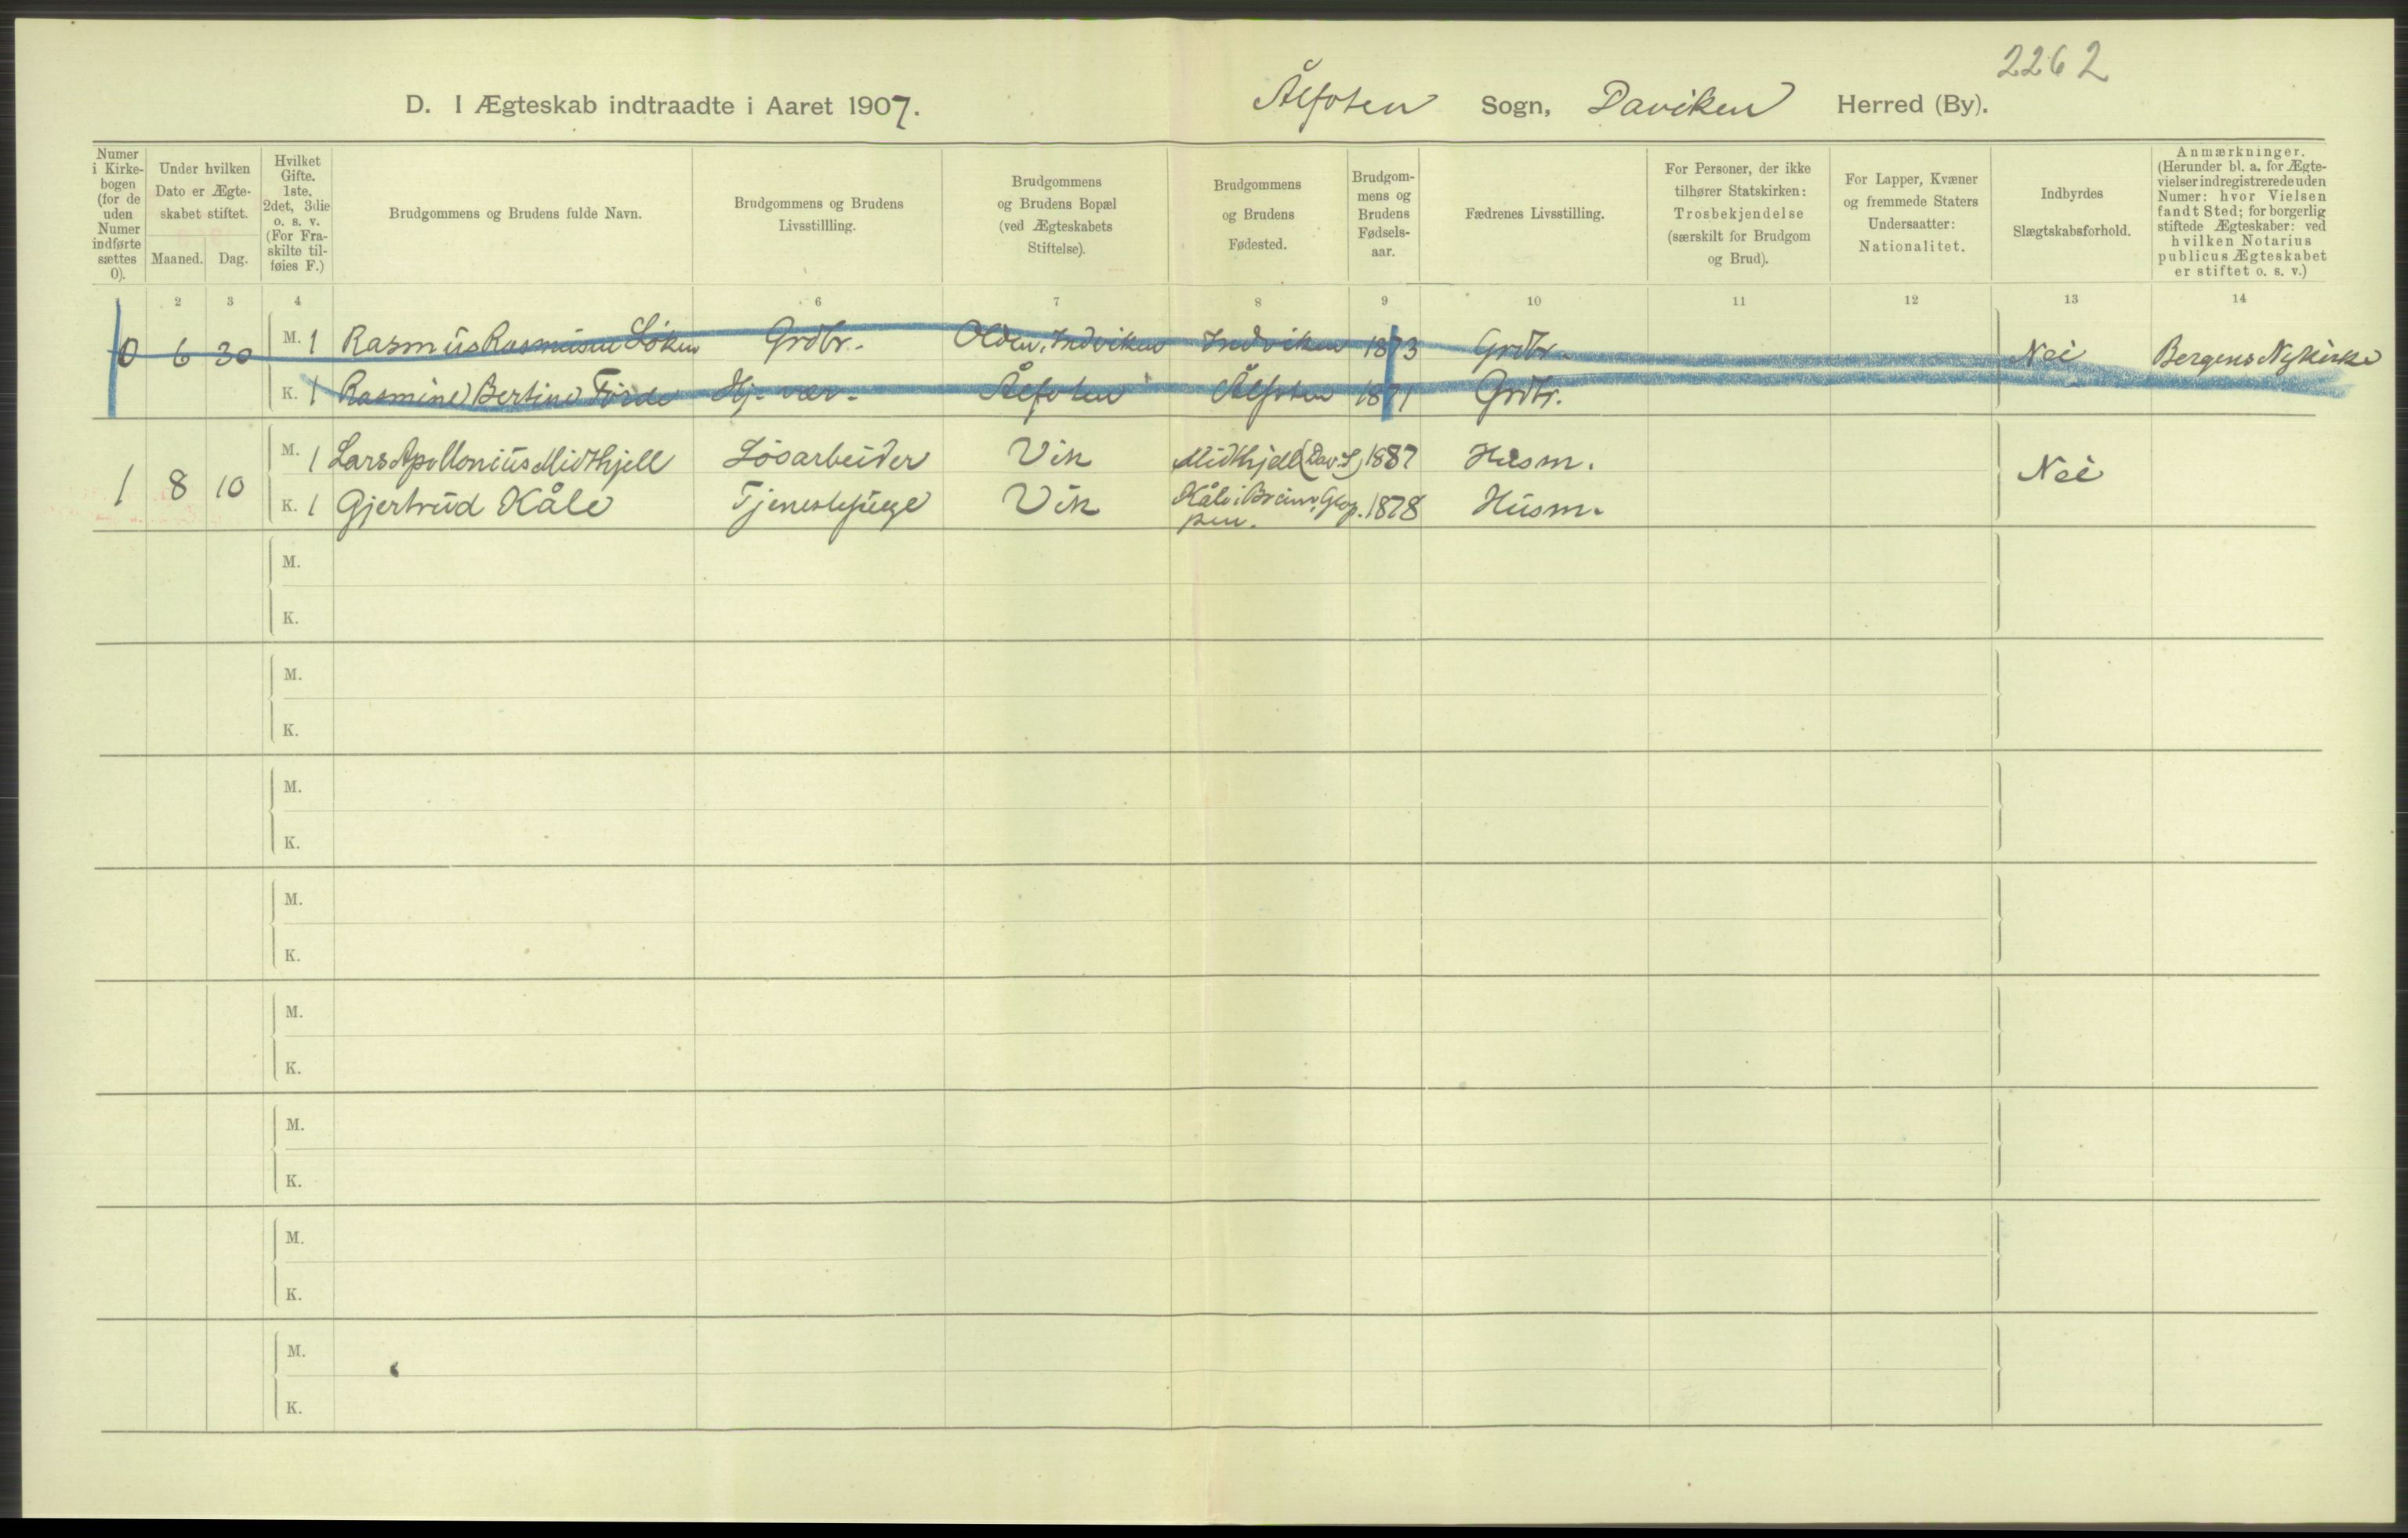 2262
D. I Ægteskab indtraadte i Aaret 1907. Ålfoten Sogn, Daviken Herred (By).
Numer i Kirkebogen (for de uden Numer indførte sættes 0).
Under hvilken Dato er Ægteskabet stiftet.
Maaned. Dag.
Hvilket Gifte. 1ste, 2det, 3die o. s. v. (For Fraskilte tilføies F.)
Brudgommens og Brudens fulde Navn.
Brudgommens og Brudens Livsstillling.
Brudgommens og Brudens Bopæl (ved Ægteskabets Stiftelse).
Brudgommens og Brudens Fødested.
Brudgommens og Brudens Fødselsaar.
Fædrenes Livsstilling.
For Personer, der ikke tilhører Statskirken: Trosbekjendelse (særskilt for Brudgom og Brud).
For Lapper, Kvæner og fremmede Staters Undersaatter: Nationalitet.
Indbyrdes Slægtskabsforhold.
Anmærkninger. (Herunder bl. a. for Ægtevielser indregistrerede uden Numer: hvor Vielsen fandt Sted; for borgerlig stiftede Ægteskaber: ved hvilken Notarius publicus Ægteskabet er stiftet o. s. v.)
2 3 4 6 7 8 9 10 11 12 13 14
0 6 30 M. 1 Rasmus Rasmusen Løken Grdbr. Olden, Indviken Indviken 1873 Grdbr. Nei Bergens Nykirke
K. 1 Rasmine Bertine Förde Hj. vær. Ålfoten Ålfoten 1871 Grdbr.
1 8 10 M. 1 Lars Apollonius Midthjell Løsarbeider Vik Midthjell (Dav. S) 1887 Husm. Nei
K. 1 Gjertrud Kåle Tjenestepige Vik Kåle i Breim, Glop- 1878 Husm.
pen.
M.
K.
M.
K.
M.
K.
M.
K.
M.
K.
M.
K.
M.
K.
M.
K.